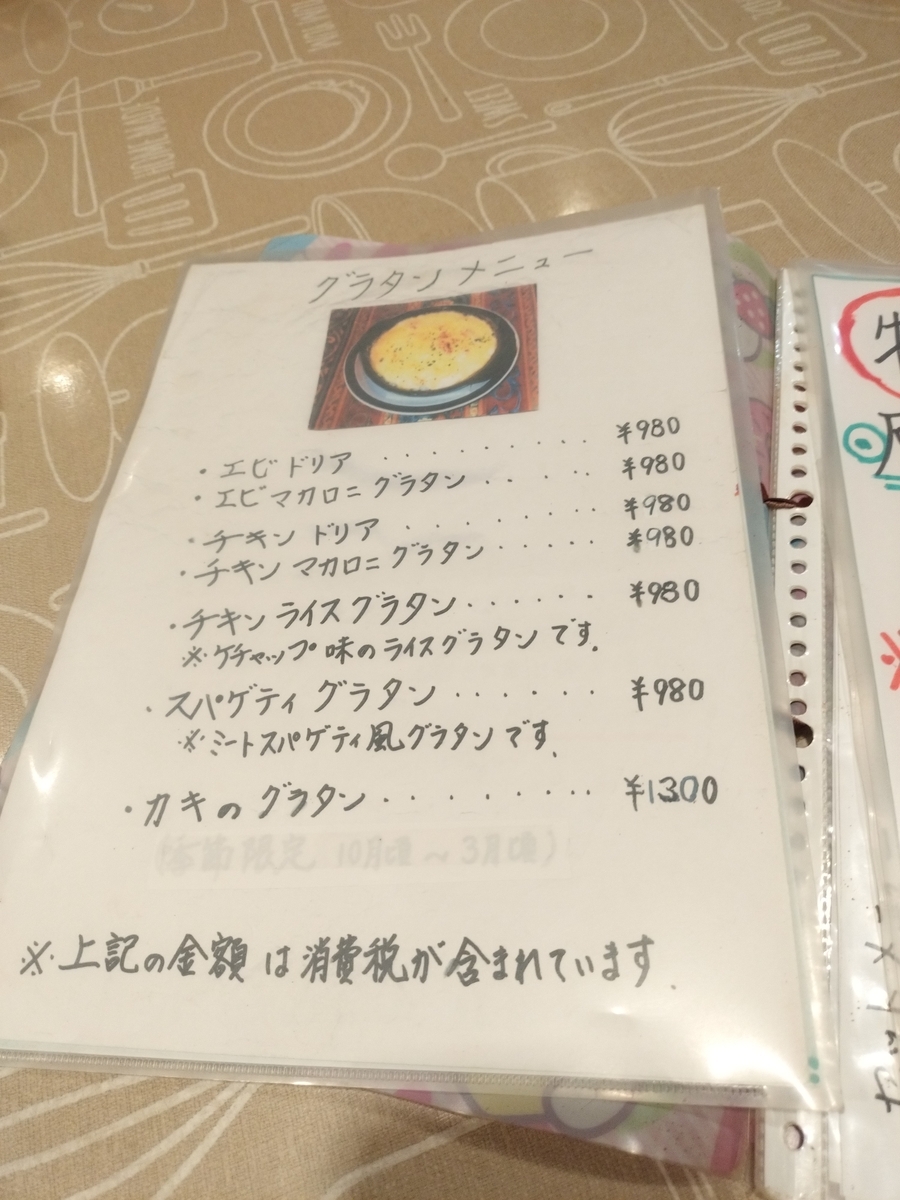 グラタン メニュー
・エビ ドリア ・・・・・・・・・ ¥980
・エビマカロニ グラタン ・・・・・ ¥980
・チキン ドリア ・・・・・・・・ ¥980
・チキン マカロニ グラタン ・・・・・ ¥980
・チキン ライス グラタン ・・・・・・ ¥980
※ケチャップ味のライスグラタンです。
・スパゲティ グラタン ・・・・・・ ¥980
※ミートスパゲティ風グラタンです。
・カキの グラタン ・・・・・・・・ ¥1300
(季節限定 10月頃 ~ 3月頃)
※上記の金額は消費税が含まれています.
HOME MADE
YUM YUM
SWEET